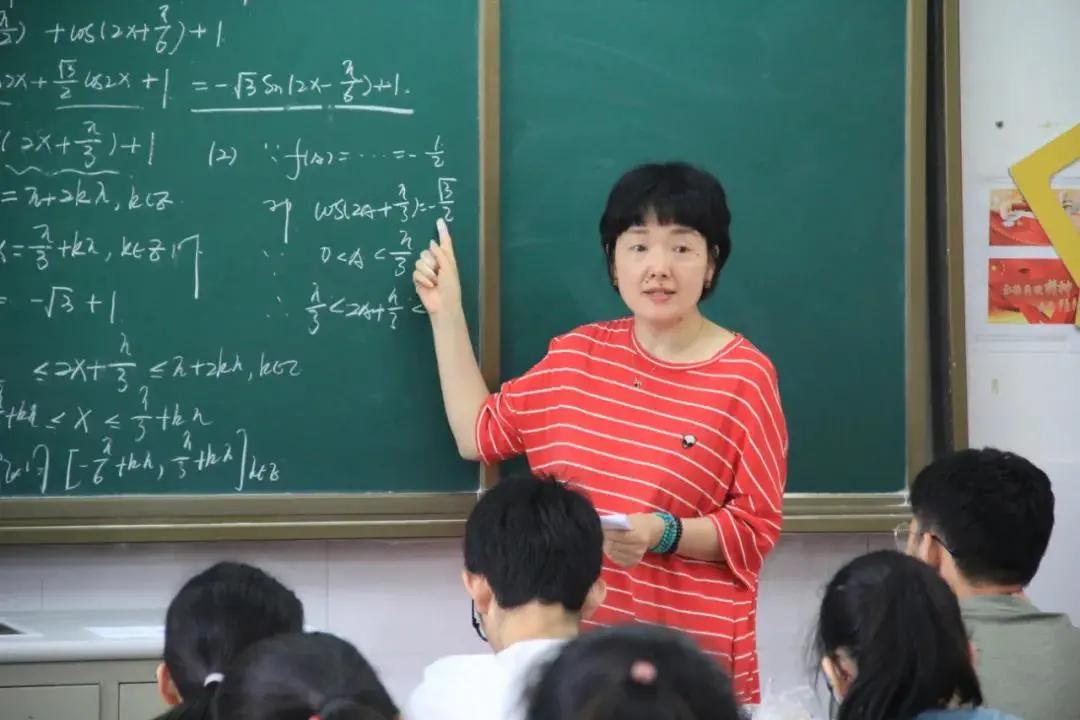 ) + cos(2x + π/6) + 1
2x + √3/2 cos2x + 1 = -√3 Sin(2x - π/6) + 1.
(2x + π/3) + 1
= π + 2kπ, k∈Z
x = π/3 + kπ, k∈Z 时
= -√3 + 1
≤ 2x + π/3 ≤ π + 2kπ, k∈Z
+ kπ ≤ x ≤ π/3 + kπ
[-π/6 + kπ, π/3 + kπ] k∈Z
(2) ∵ f(A) = ⋯ = -1/2
即 cos(2A + π/3) = -√3/2
∵ 0 < A < π/3
∴ π/3 < 2A + π/2 <